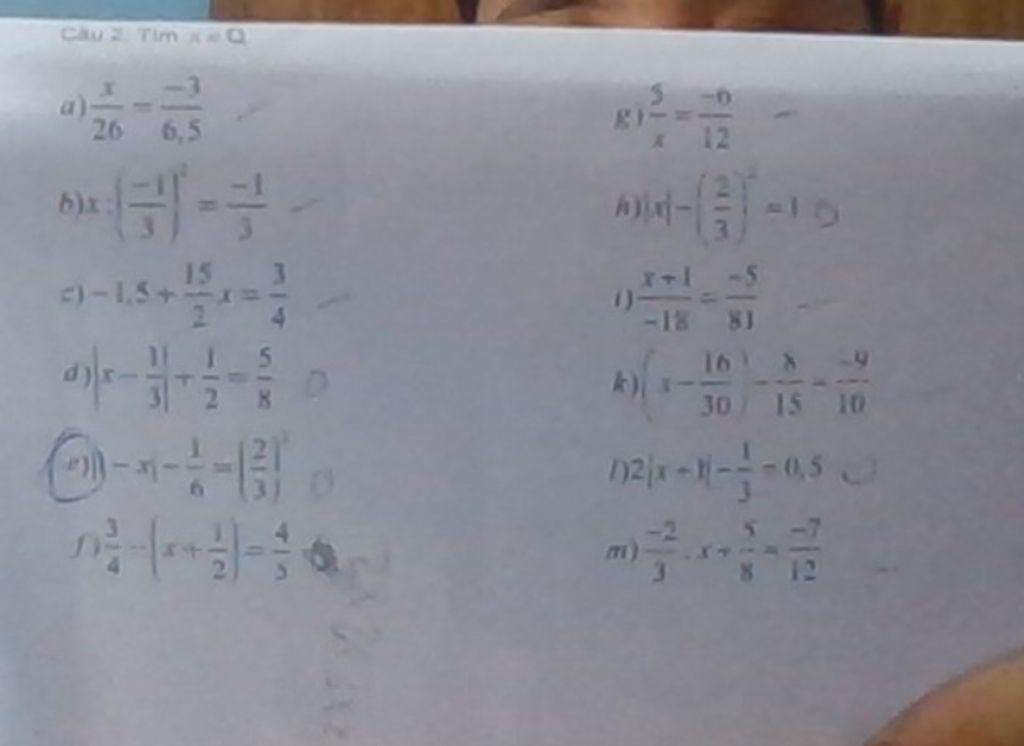 Câu 2. Tìm x ∈ Q
a) x/26 = -3/6,5
b) x : (-1/3)² = -1/3
c) -1,5 + 15/2 x = 3/4
d) |x - 11/3| + 1/2 = 5/8
e) |1 - x| - 1/6 = (2/3)²
f) 3/4 - (x + 1/2) = 4/5
g) 5/x = -6/12
h) |x| - (2/3)² = 1
i) (x+1)/-18 = -5/81
k) (x - 16/30) - 8/15 = -9/10
l) 2|x + 1| - 1/3 = 0,5
m) -2/3 . x + 5/8 = -7/12